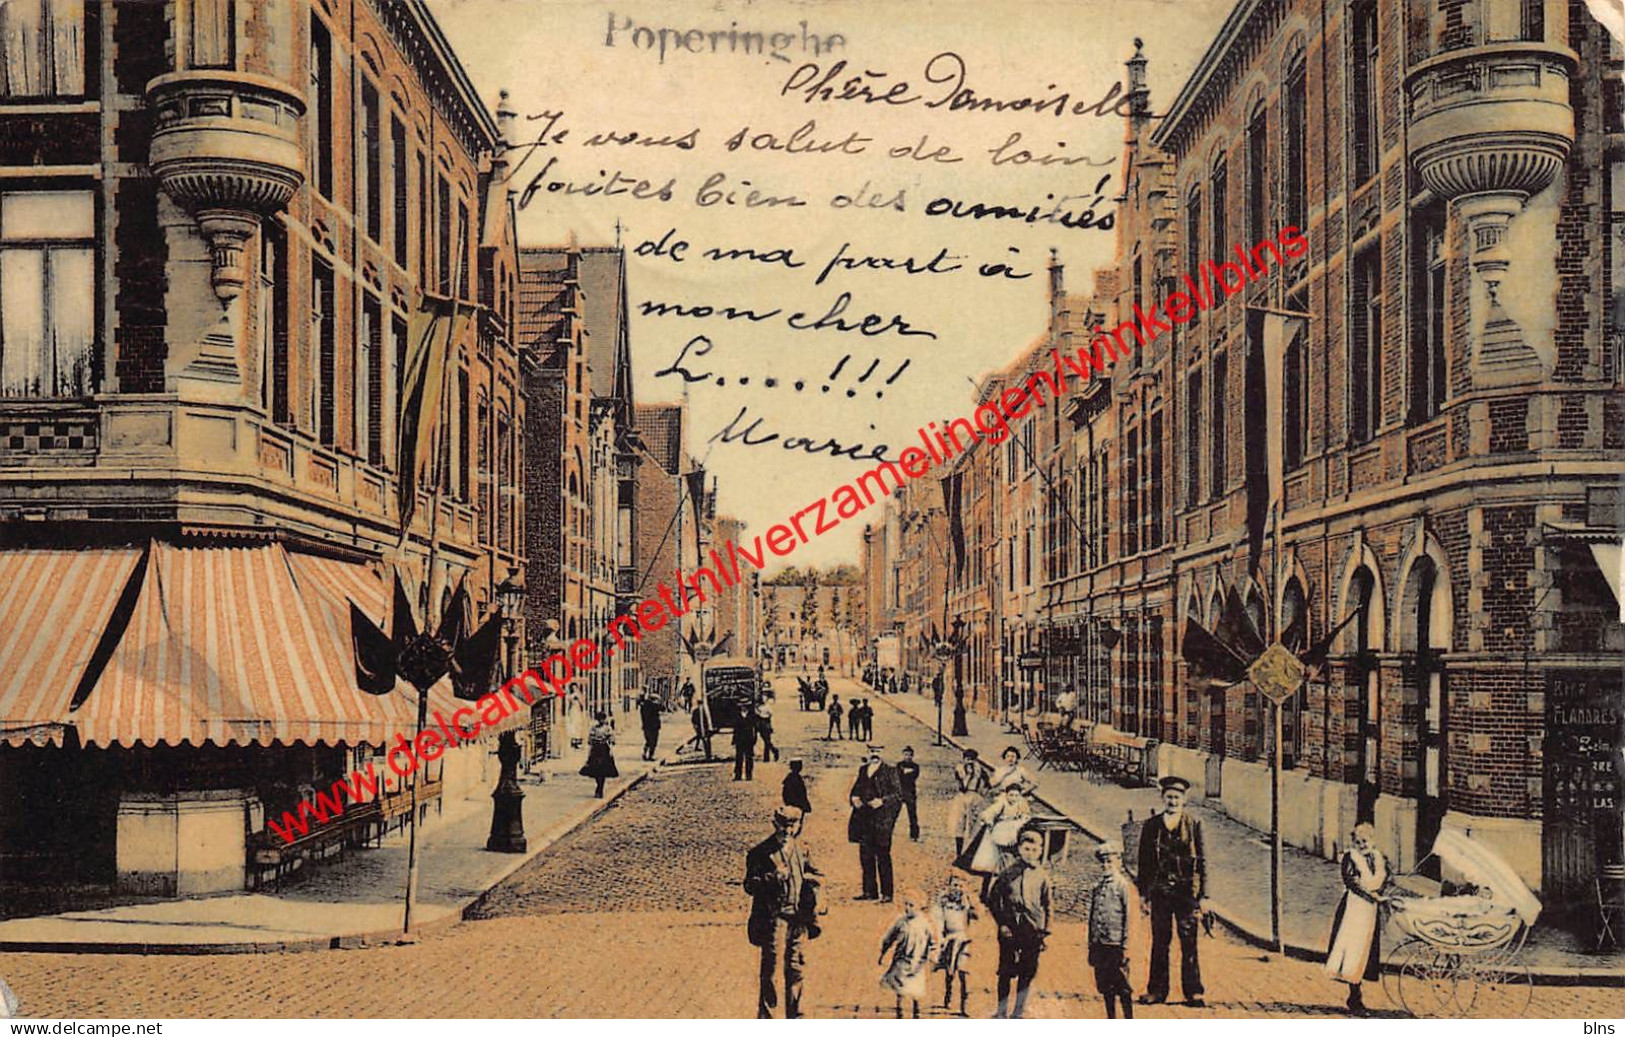 Poperinghe
Chère Damoiselle
Je vous salut de loin
faites bien des amitiés
de ma part à
mon cher
L....!!!
Marie.
www.delcampe.net/nl/verzamelingen/winkel/blns
FLANDRES
www.delcampe.net
blns